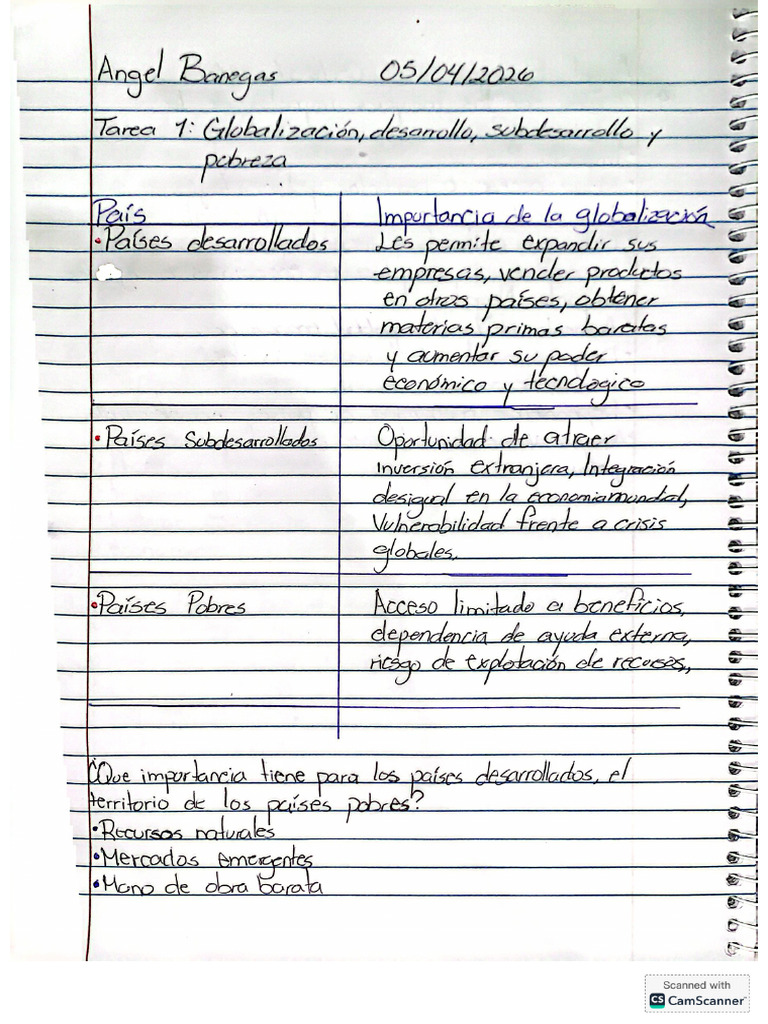 Angel Banegas 05/04/2026
Tarea 1: Globalización, desarrollo, subdesarrollo y
pobreza
País
Importancia de la globalización
•Países desarrollados
Les permite expandir sus
empresas, vender productos
en otros países, obtener
materias primas baratas
y aumentar su poder
económico y tecnologico
•Países Subdesarrollados
Oportunidad de atraer
inversión extranjera, Integración
desigual en la economia mundial,
Vulnerabilidad frente a crisis
globales.
•Países Pobres
Acceso limitado a beneficios,
dependencia de ayuda externa,
riesgo de explotación de recursos,
¿Que importancia tiene para los países desarrollados, el
territorio de los países pobres?
•Recursos naturales
•Mercados emergentes
•Mano de obra barata
Scanned with
CS CamScanner